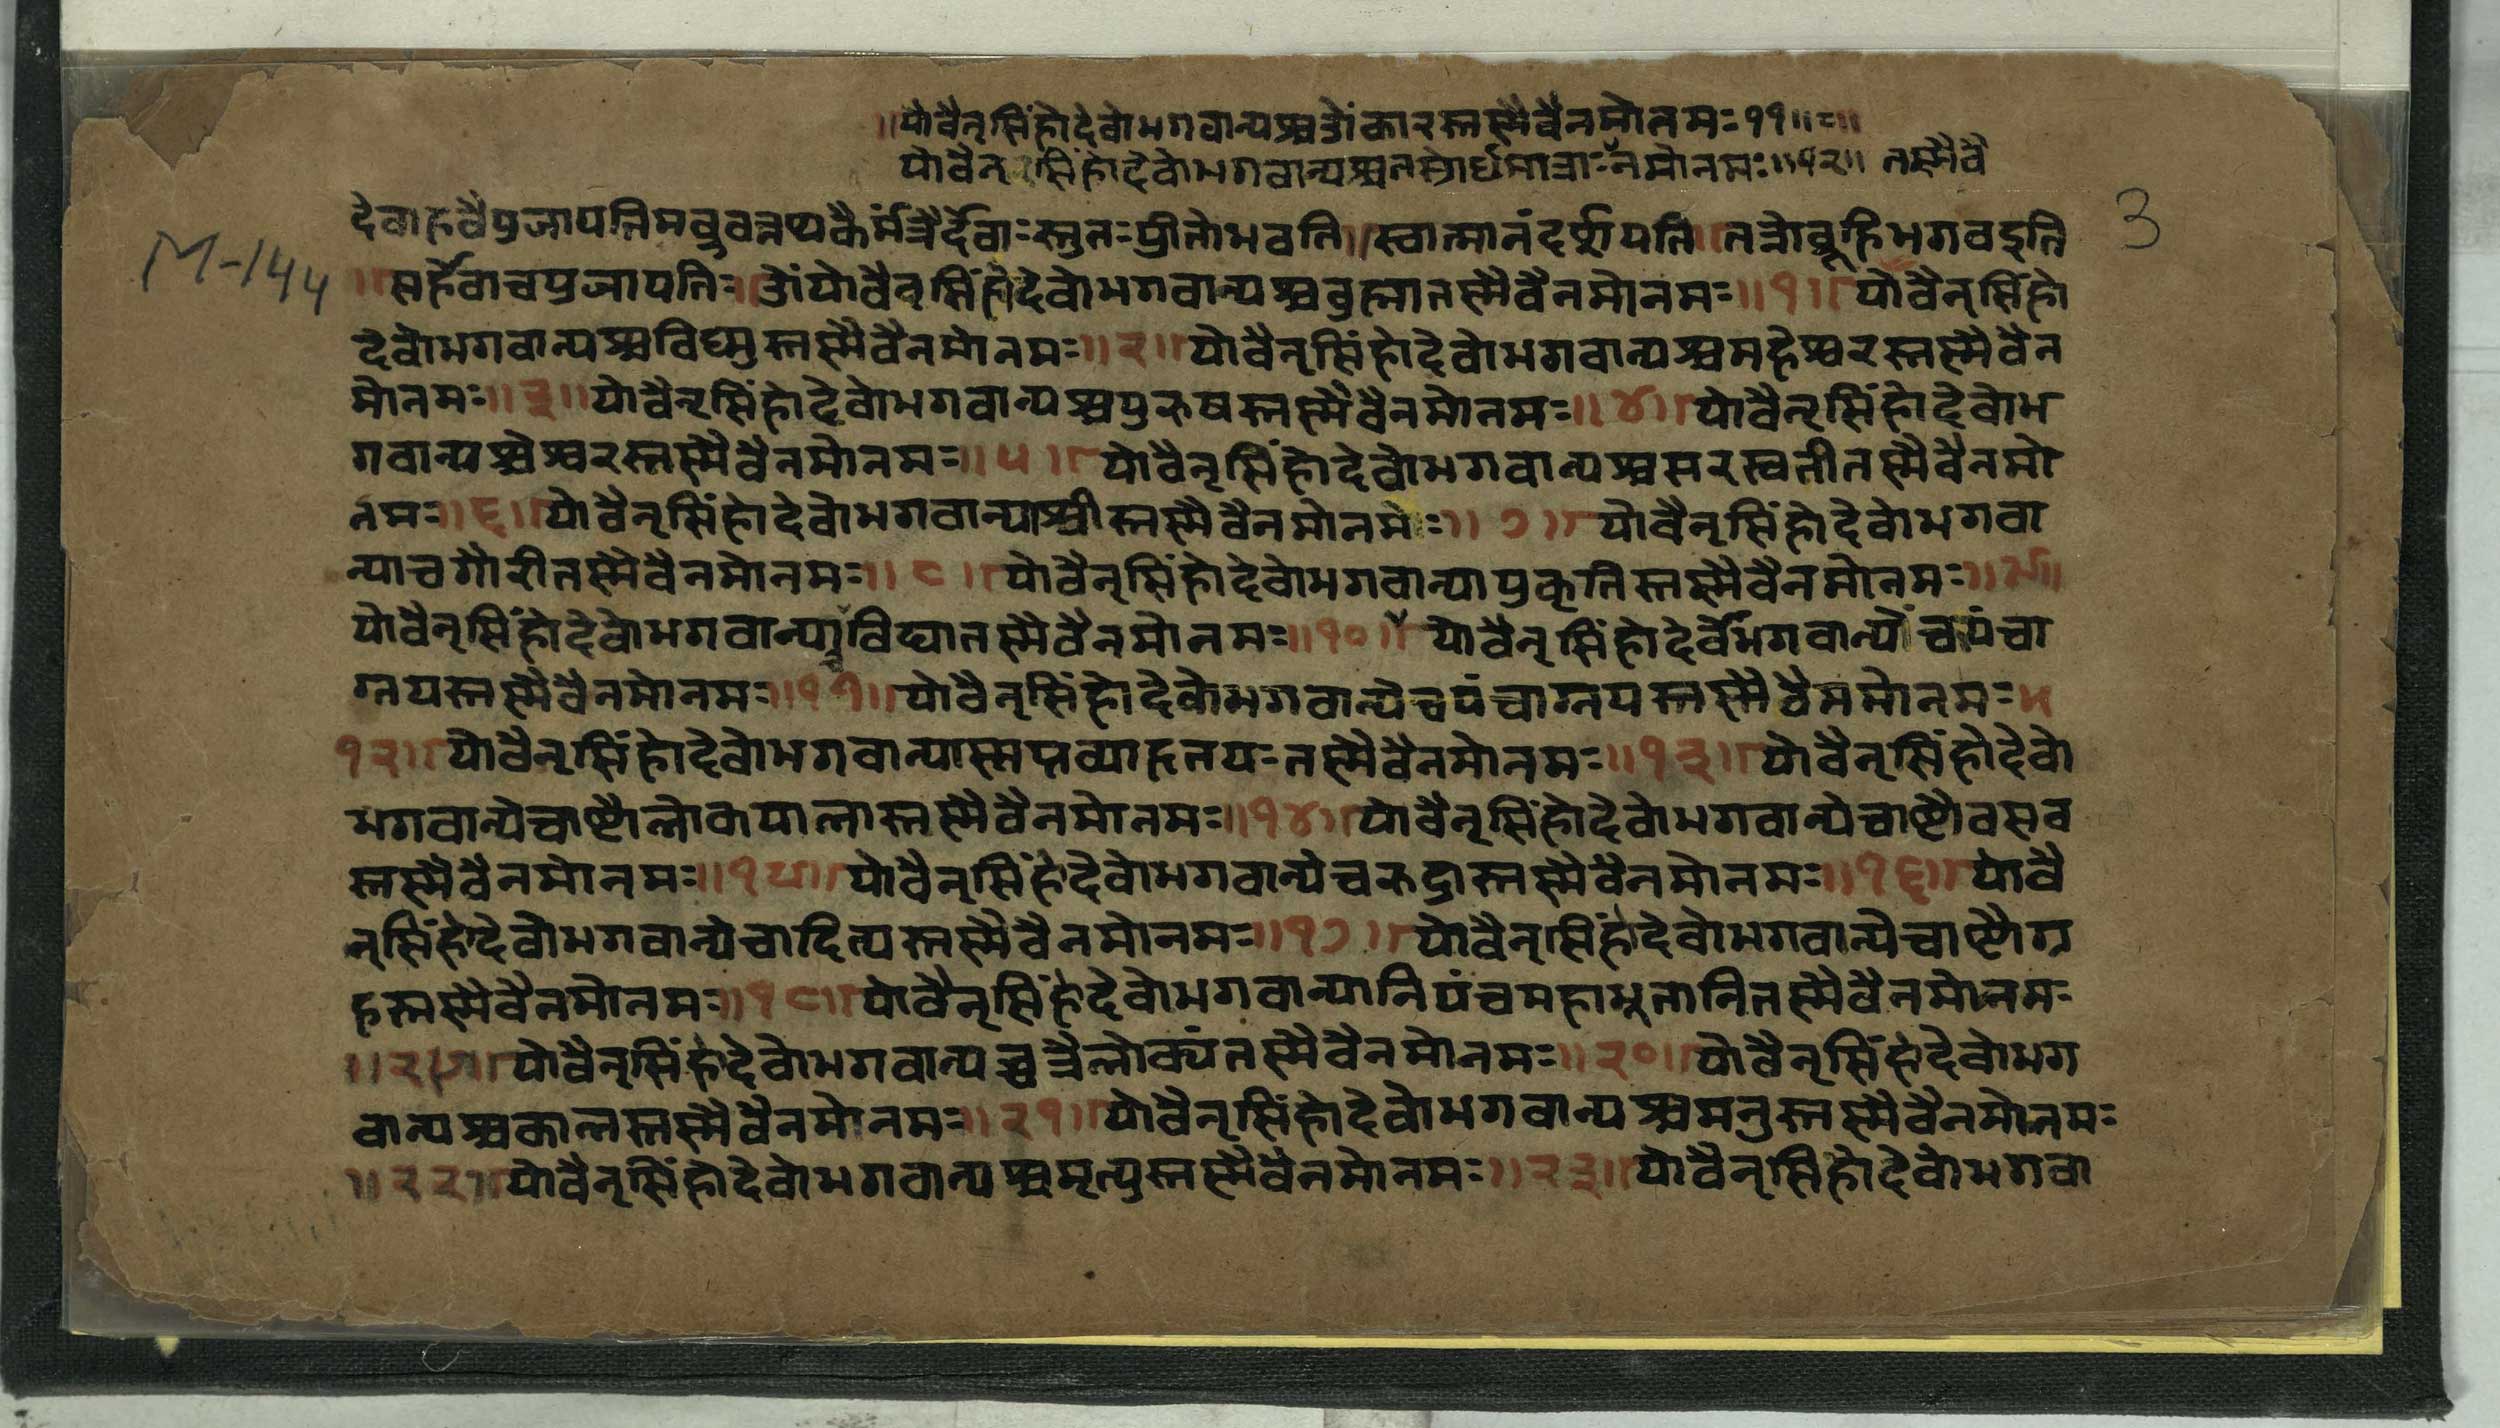 ॥योवैनृसिंहोदेवोभगवान्यश्चओंकारस्तस्मैवैनमोनमः११॥=॥
योवैनृसिंहोदेवोभगवान्यश्चतस्रोर्धमात्राःनमोनमः॥१२॥ तस्मैवै
देवाहवैप्रजापतिमब्रुवन्नथकैर्मंत्रैर्देवाःस्तुतःप्रीतोभवति॥स्वात्मानंदर्शयति॥तन्नोब्रूहिभगवइति
3
M-144
॥सहोवाचप्रजापतिः॥ओंयोवैनृसिंहोदेवोभगवान्यश्चब्रह्मातस्मैवैनमोनमः॥१॥योवैनृसिंहो
देवोभगवान्यश्चविष्णुस्तस्मैवैनमोनमः॥२॥योवैनृसिंहोदेवोभगवान्यश्चमहेश्वरस्तस्मैवैन
मोनमः॥३॥योवैनृसिंहोदेवोभगवान्यश्चपुरुषस्तस्मैवैनमोनमः॥४॥योवैनृसिंहोदेवोभ
गवान्यश्चेश्वरस्तस्मैवैनमोनमः॥५॥योवैनृसिंहोदेवोभगवान्यश्चसरस्वतीतस्मैवैनमो
नमः॥६॥योवैनृसिंहोदेवोभगवान्याश्चीस्तस्मैवैनमोनमः॥७॥योवैनृसिंहोदेवोभगवा
न्याचगौरीतस्मैवैनमोनमः॥८॥योवैनृसिंहोदेवोभगवान्याप्रकृतिस्तस्मैवैनमोनमः॥९॥
योवैनृसिंहोदेवोभगवान्याविद्यातस्मैवैनमोनमः॥१०॥योवैनृसिंहोदेवोभगवान्येचपंचा
ग्नयस्तस्मैवैनमोनमः॥११॥योवैनृसिंहोदेवोभगवान्येचपंचाग्नयस्तस्मैवैममोनमः॥
१२॥योवैनृसिंहोदेवोभगवान्यास्सप्तव्याहृतयःतस्मैवैनमोनमः॥१३॥योवैनृसिंहोदेवो
भगवान्येचाष्टौलोकपालास्तस्मैवैनमोनमः॥१४॥योवैनृसिंहोदेवोभगवान्येचाष्टौवसव
स्तस्मैवैनमोनमः॥१५॥योवैनृसिंहोदेवोभगवान्येचरुद्रास्तस्मैवैनमोनमः॥१६॥योवै
नृसिंहोदेवोभगवान्येचादित्यस्तस्मैवैनमोनमः॥१७॥योवैनृसिंहोदेवोभगवान्येचाष्टौग्र
हस्तस्मैवैनमोनमः॥१८॥योवैनृसिंहोदेवोभगवान्यानिपंचमहाभूतानितस्मैवैनमोनमः
॥२९॥योवैनृसिंहोदेवोभगवान्यच्चत्रैलोक्यंतस्मैवैनमोनमः॥२०॥योवैनृसिंहोदेवोभग
वान्यश्चकालस्तस्मैवैनमोनमः॥२१॥योवैनृसिंहोदेवोभगवान्यश्चमनुस्तस्मैवैनमोनमः
॥२२॥योवैनृसिंहोदेवोभगवान्यश्चमृत्युस्तस्मैवैनमोनमः॥२३॥योवैनृसिंहोदेवोभगवा